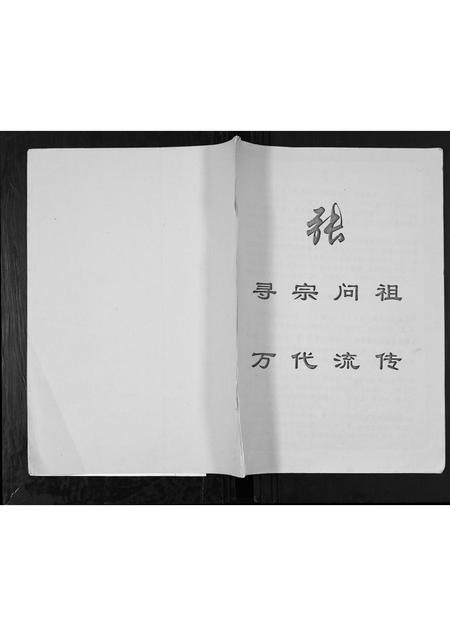 张
寻宗问祖
万代流传